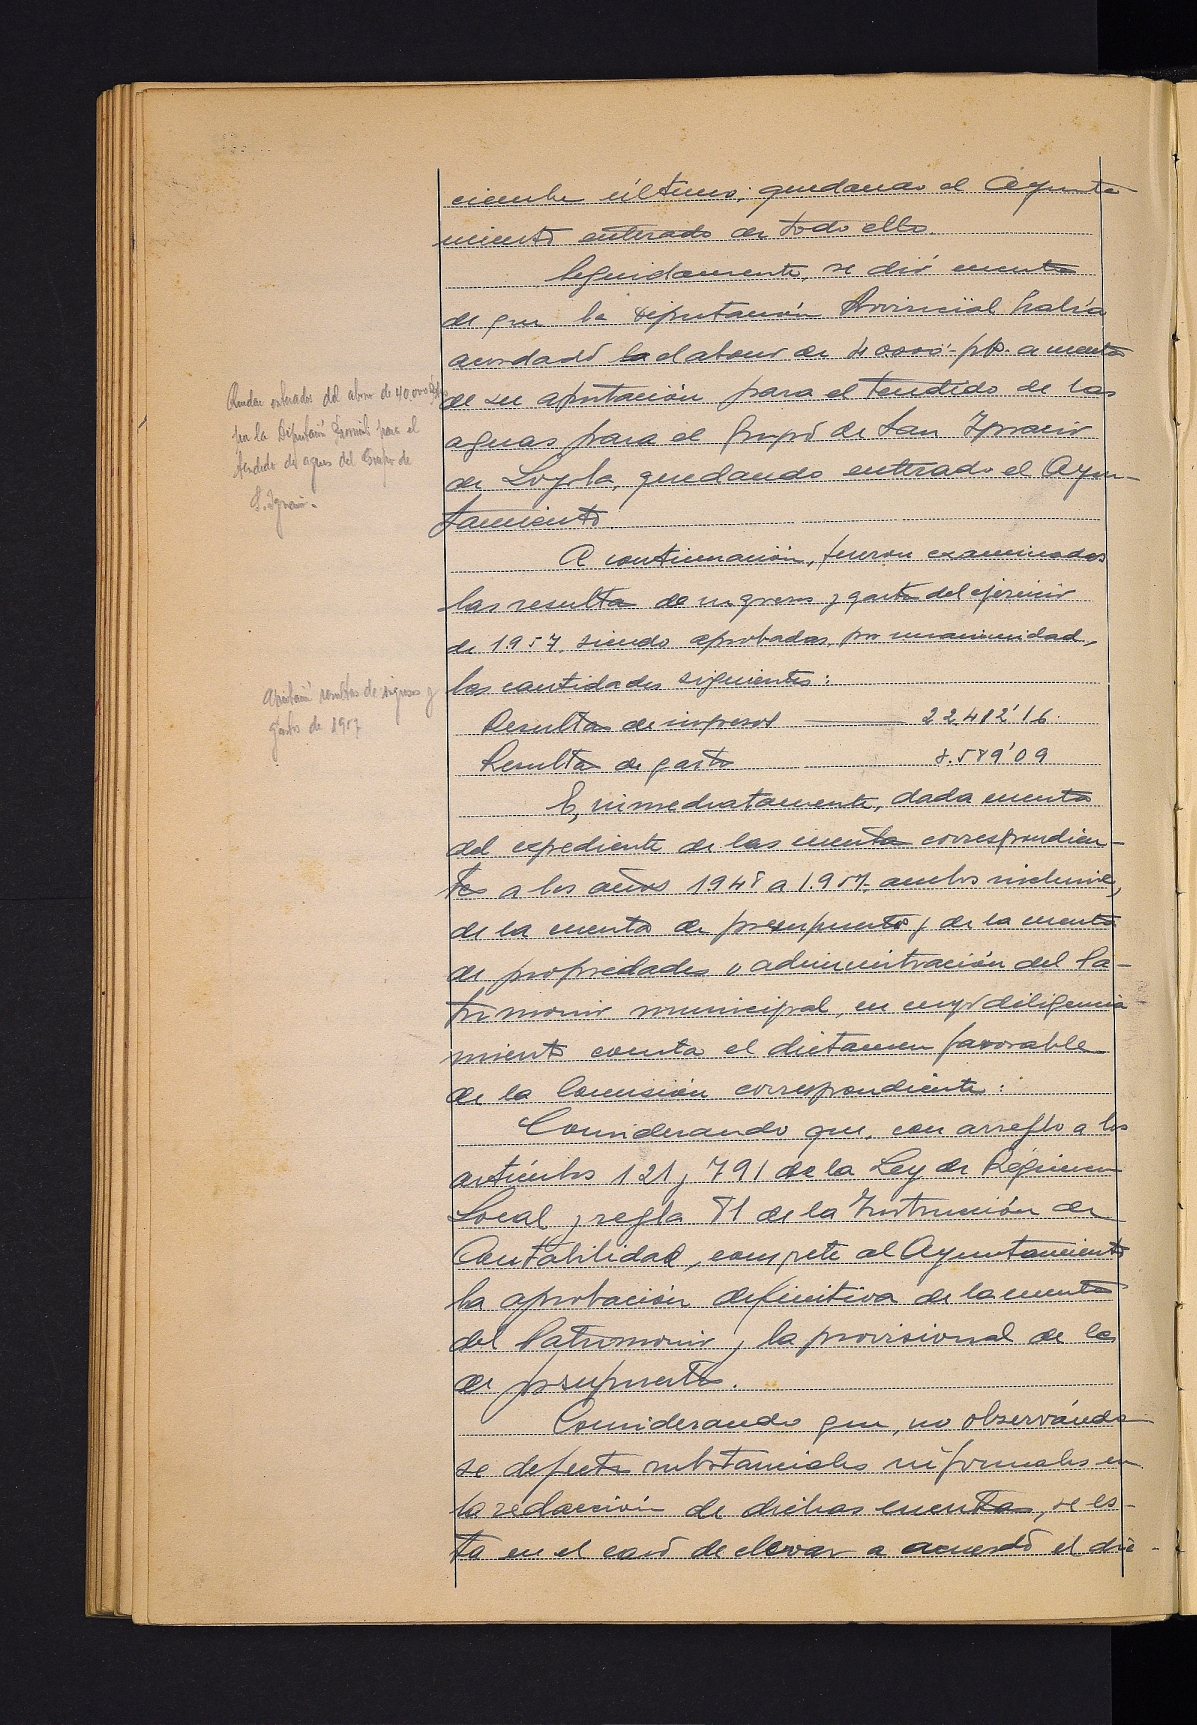 ciembre último; quedando el Ayunta
miento enterado de todo ello.
Seguidamente, se dió cuenta
de que la Diputación Provincial había
acordado el abono de 40.000'- pts. a cuenta
Quedar enterados del abono de 40.000 pts
por la Diputación Provincial para el
tendido de aguas del Grupo de
S. Ignacio.-
de su aportación para el tendido de las
aguas para el Grupo de San Ignacio
de Loyola, quedando enterado el Ayun-
tamiento.
A continuación, fueron examinados
las resultas de ingresos y gastos del ejercicio
de 1.957, siendo aprobadas, por unanimidad,
las cantidades siguientes:
resultas de ingresos y
gastos de 1957
Resultas de ingresos ——— 22.482'16.
Resultas de gastos 8.589'09
E, inmediatamente, dada cuenta
del expediente de las cuentas correspondien-
tes a los años 1948 a 1.957, ambos inclusive,
de la cuenta de presupuestos y de la cuenta
de propiedades o administración del Pa-
trimonio municipal, en cuyo diligencia
miento consta el dictamen favorable
de la Comisión correspondiente:
Considerando que, con arreglo a los
artículos 121 y 791 de la Ley de Régimen
Local y regla 81 de la Instrucción de
Contabilidad, compete al Ayuntamiento
la aprobación definitiva de la cuenta
del Patrimonio y la provisional de las
de presupuestos.
Considerando que, no observándo
se defectos substanciales ni formales en
la redacción de dichas cuentas, se es-
ta en el caso de elevar a acuerdo el dic-